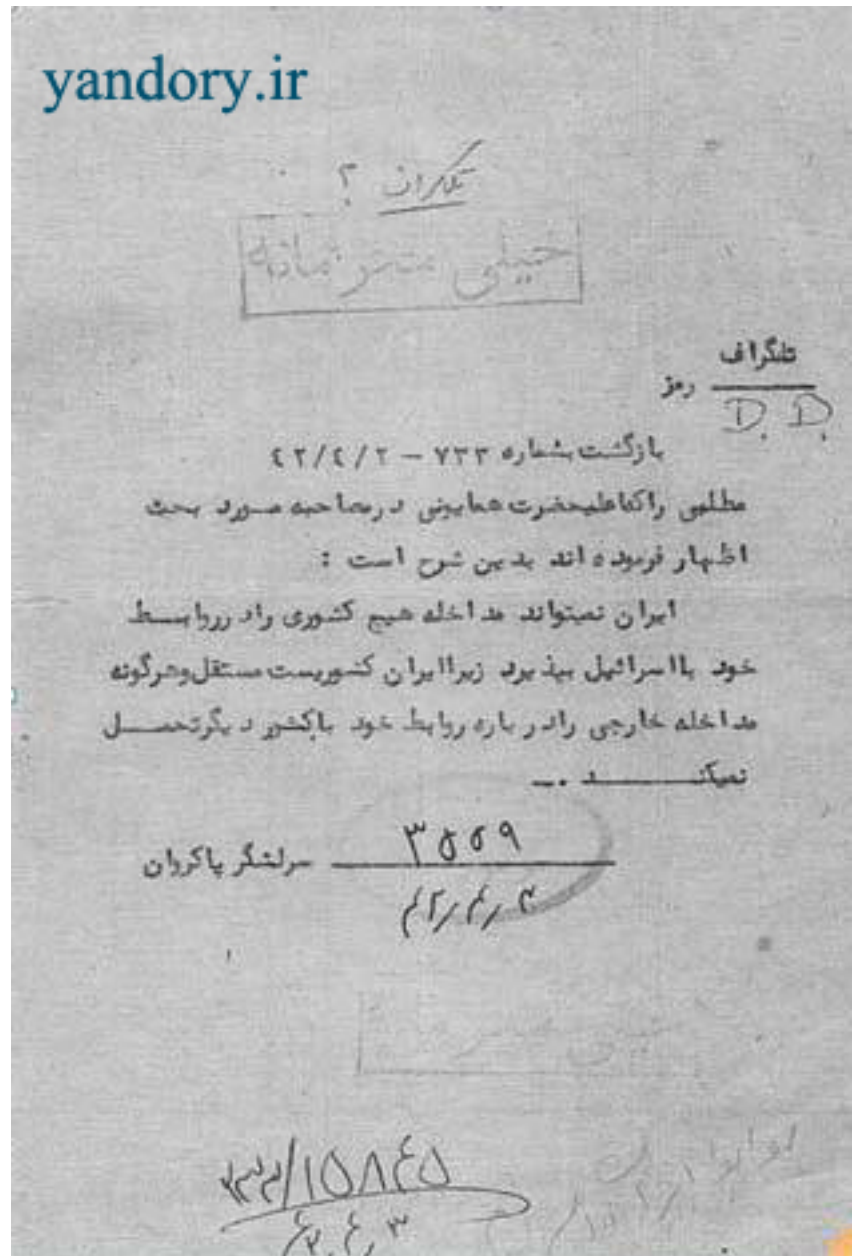 yandory.ir
تلگراف ؟
خیلی محرمانه
تلگراف
رمز
D. D.
بازگشت بشماره ۷۳۳ – ۴۲/۴/۲
مطلبی را که اعلیحضرت همایونی در مصاحبه مورد بحث
اظهار فرموده اند بدین شرح است :
ایران نمیتواند مداخله هیچ کشوری را در روابط
خود با اسرائیل بپذیرد زیرا ایران کشوریست مستقل و هرگونه
مداخله خارجی را در باره روابط خود با کشور دیگر تحمل
نمیکند .ــ
۳۵۵۹ سرلشگر پاکروان
۴۲٫۴٫۳
۳۳۲/۱۵۸۴۵
۴۲٫۴٫۳